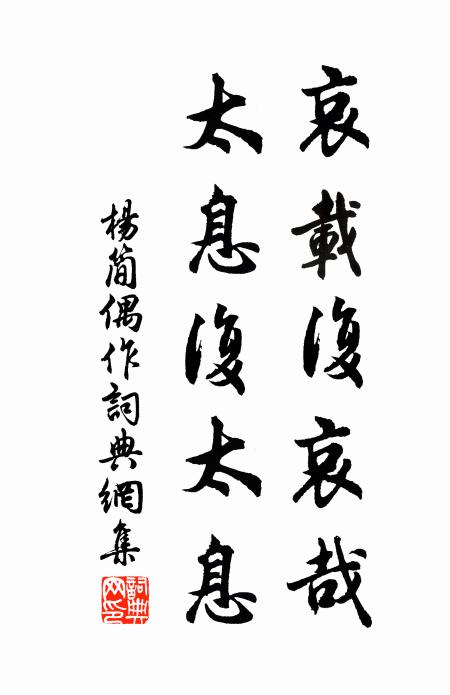 哀載復哀哉
太息復太息
楊簡偶作詞典網集
詞典網印